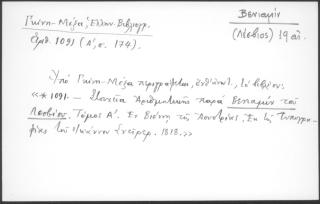 Γκίνη-Μέξα, Ελλην. Βιβλιογρ.
Αριθ. 1091 (Α', σ. 174).
Βενιαμίν
(Λέσβιος) 19 αι.
Υπό Γκίνη-Μέξα περιγράφεται, ενθ' ανωτ., το βιβλίον:
«*1091.— Στοιχεία Αριθμητικής παρά Βενιαμίν του
Λεσβίου. Τόμος Α'. Εν Βιέννη της Αουστρίας, Εκ της Τυπογρα-
φίας του Ιωάννου Σνείρερ. 1818.»